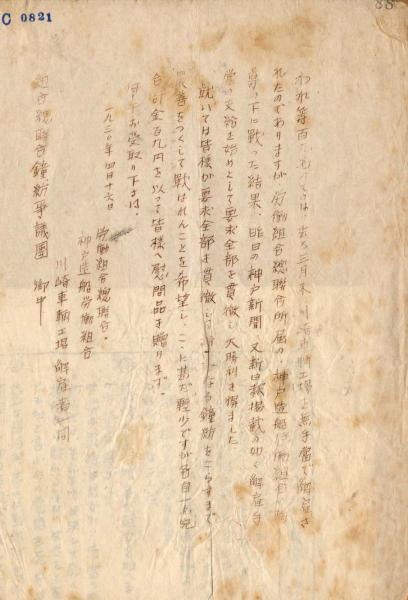 C 0821
われ等百
は去る三月末
車輌工場
無手当で解雇さ
れたのでありますが、労働組合総聯合所属の神戸造船労働組合
下に戦った結果、昨日の神戸新聞、又新日報掲載の如く解雇手
当の支給を始めとして要求全部を貫徹し大勝利を得ました
就いては皆様が要求全部を貫徹し
なる鐘紡をこらすまで
善をつくして戦はれんことを希望し、ここに甚だ軽少ですが各自
合計金百九円を以って皆様へ慰問品を贈ります。
受取り下さい。
一九三〇年四月十六日
労働組合総聯合・
神戸造船労働組合
川崎車輌工場解雇者一同
組合総聯合鐘紡争議團 御中